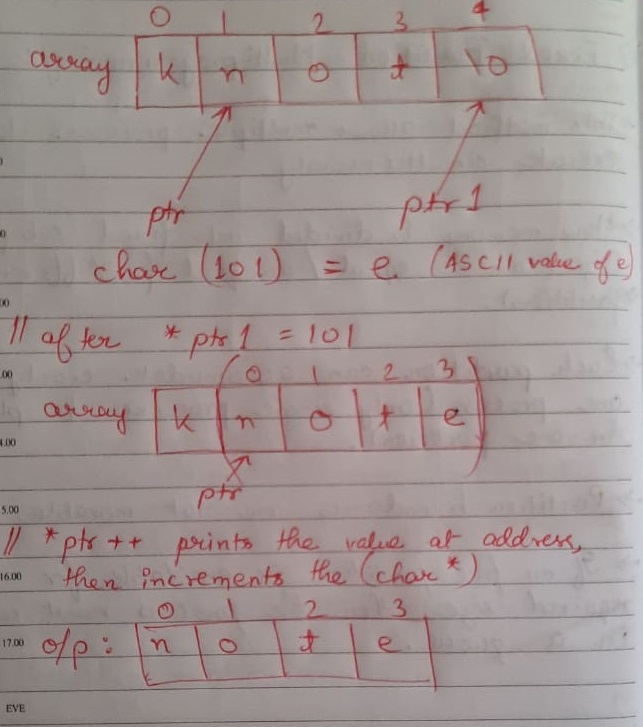 0 1 2 3 4
array k n o t \0
ptr ptr 1
char (101) = e (ASCII value of e)
// after *ptr 1 = 101
0 1 2 3
array k n o t e
ptr
// *ptr ++ prints the value at address,
then increments the (char *)
0 1 2 3
o/p : n o t e
.00
.00
5.00
16.00
17.00
EVE